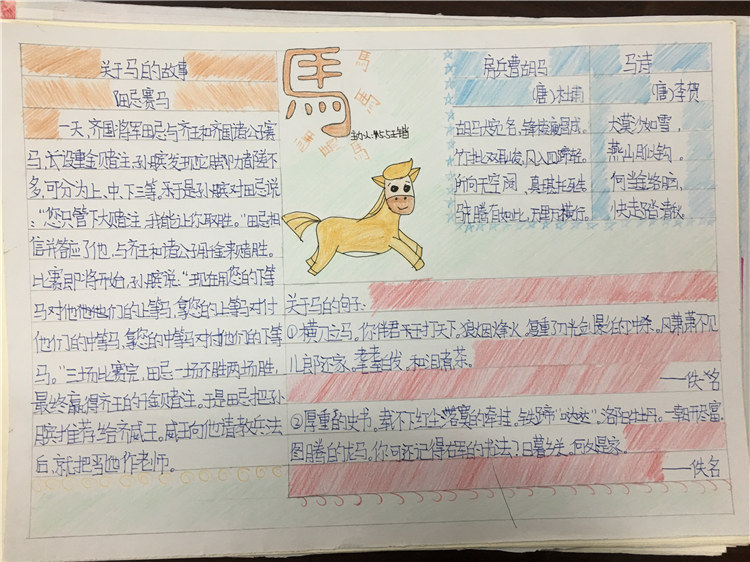 关于马的故事
田忌赛马
一天,齐国将军田忌与齐王和齐国诸公子赛
马,设重金赌注。孙膑发现脚力都差不
多,可分为上、中、下三等。于是孙膑对田忌说
:“您只管下大赌注,我能让你取胜。”田忌相
信并答应了他,与齐王和诸公子用千金来赌胜。
比赛即将开始,孙膑说:“现在用您的下等
马对他他他们的上等马,拿您的上等马对付
他们的中等马,拿您的中等马对付他们的下等
马。”三场比赛完,田忌一场不胜两场胜,
最终赢得齐王的千金赌注。于是田忌把孙
膑推荐给齐威王。威王向他请教兵法
后,就把当他作老师。
馬
房兵曹胡马
(唐)杜甫
胡马大宛名,锋棱瘦骨成。
竹批双耳峻,风入四蹄轻。
所向无空阔,真堪托死生
骁腾有如此,万里可横行。
马诗
(唐)李贺
大漠沙如雪,
燕山月似钩。
何当金络脑,
快走踏清秋
关于马的句子:
①横刀立马。你伴君王打天下。狼烟烽火,刀光剑影的冲杀。风萧萧不见
儿郎还家。老妻白发,和泪煮茶。
——佚名
②厚重的史书,载不下红尘的牵挂。铁蹄“哒哒”。洛阳牡丹。一朝开
图腾的龙马。你可还记得右军的书法?日暮乡关。何处是家。
——佚名